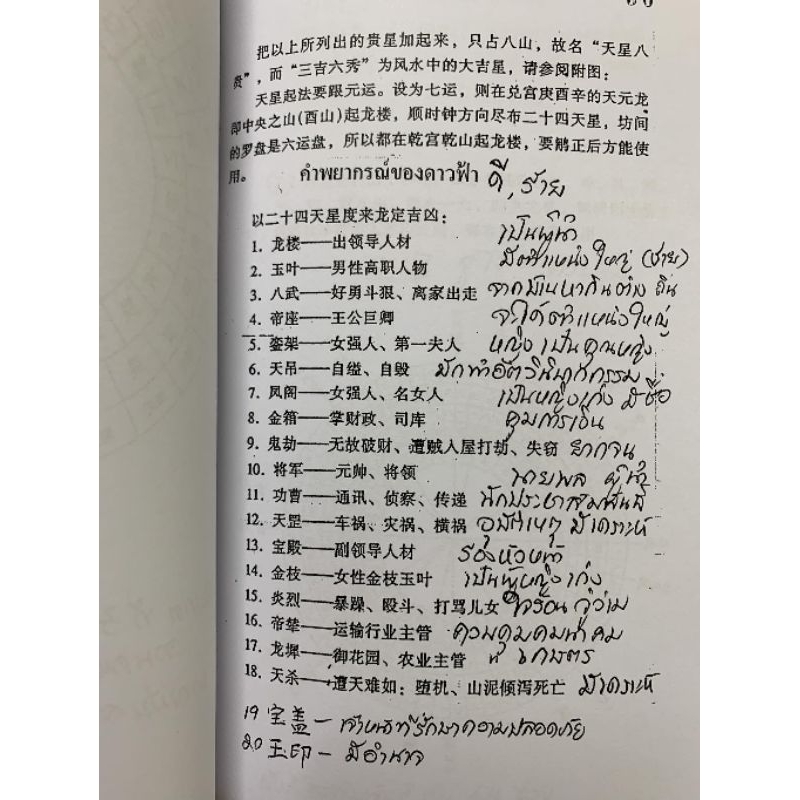 把以上所列出的贵星加起来，只占八山，故名“天星八
贵”，而“三吉六秀”为风水中的大吉星，请参阅附图：
天星起法要跟元运。设为七运，则在兑宫庚酉辛的天元龙
即中央之山(酉山)起龙楼，顺时钟方向尽布二十四天星，坊间
的罗盘是六运盘，所以都在乾宫乾山起龙楼，要弄正后方能使
用。 คำพยากรณ์ของดาวฟ้า ดี, ร้าย
以二十四天星度来龙定吉凶：
1. 龙楼——出领导人材 เป็นผู้นำ
2. 玉叶——男性高职人物 มีตำแหน่งใหญ่ (ชาย)
3. 八武——好勇斗狠、离家出走 จากมีเนหากินต่างถิ่น
4. 帝座——王公巨卿 จะได้ตำแหน่งใหญ่
5. 銮架——女强人、第一夫人 หญิงเป็นคุณหญิง
6. 天吊——自缢、自毁 มักทำอัตวินิบาตกรรม
7. 凤阁——女强人、名女人 เป็นหญิงเก่ง มีชื่อ
8. 金箱——掌财政、司库 คุมการเงิน
9. 鬼劫——无故破财、遭贼入屋打劫、失窃 ยากจน
10. 将军——元帅、将领 นายพล ผู้นำ
11. 功曹——通讯、侦察、传递 นักประชาสัมพันธ์
12. 天罡——车祸、灾祸、横祸 อุบัติเหตุ มีเคราะห์
13. 宝殿——副领导人材 รองหัวหน้า
14. 金枝——女性金枝玉叶 เป็นผู้หญิงเก่ง
15. 炎烈——暴躁、殴斗、打骂儿女 ใจร้อน วู่วาม
16. 帝辇——运输行业主管 ควบคุมคมนาคม
17. 龙墀——御花园、农业主管 เกษตร
18. 天杀——遭天难如：堕机、山泥倾泻死亡 มีเคราะห์
19 宝盖 – เจ้าหน้าที่รักษาความปลอดภัย
20 玉印 – มีอำนาจ